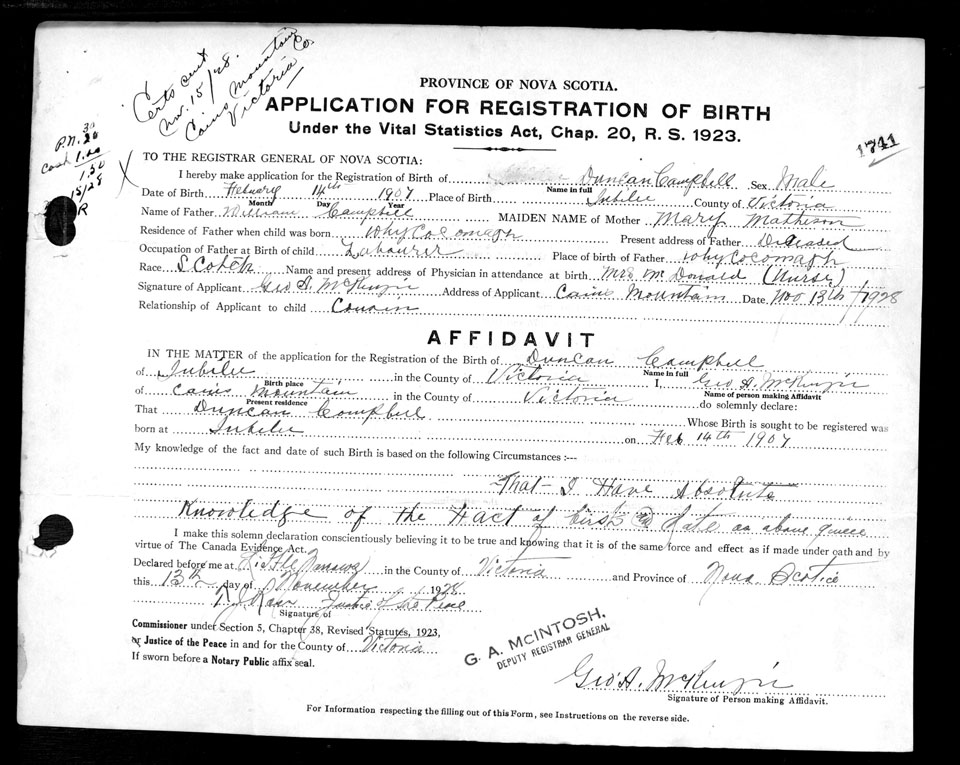 Certs sent
Nov. 15/28.
Cains Mountain
Victoria Co.
P.N. 30
Cash 1.20
1.50
15/28
R
PROVINCE OF NOVA SCOTIA.
APPLICATION FOR REGISTRATION OF BIRTH
Under the Vital Statistics Act, Chap. 20, R. S. 1923.
1741
X
TO THE REGISTRAR GENERAL OF NOVA SCOTIA:
I hereby make application for the Registration of Birth of Duncan Campbell Sex Male
Name in full
Date of Birth Febuary 14th 1907 Place of Birth Jubilee County of Victoria
Month Day Year
Name of Father William Campbell MAIDEN NAME of Mother Mary Matheson
Residence of Father when child was born Whycocomagh Present address of Father Diceased
Occupation of Father at Birth of child Labourer Place of birth of Father Whycocomagh
Race Scotch Name and present address of Physician in attendance at birth Mrs McDonald (Nurse)
Signature of Applicant Geo A. McKenzie Address of Applicant Cains Mountain Date Nov 13th 1928
Relationship of Applicant to child Cousin
AFFIDAVIT
IN THE MATTER of the application for the Registration of the Birth of Duncan Campbell
Name in full
of Jubilee in the County of Victoria I, Geo A. McKenzie
Birth place Name of person making Affidavit
of Cains Mountain in the County of Victoria do solemnly declare:
Present residence
That Duncan Campbell Whose Birth is sought to be registered was
born at Jubilee on Feb 14th 1907
My knowledge of the fact and date of such Birth is based on the following Circumstances :---
That I Have Absolute
Knowledge of the Fact of birth date as above given
I make this solemn declaration conscientiously believing it to be true and knowing that it is of the same force and effect as if made under oath and by
virtue of The Canada Evidence Act.
Declared before me at Little Narrows in the County of Victoria and Province of Nova Scotia
this 13th day of November 1928
Ross Justice of the Peace
Signature of
Commissioner under Section 5, Chapter 38, Revised Statutes, 1923,
or Justice of the Peace in and for the County of Victoria
If sworn before a Notary Public affix seal.
G. A. McINTOSH.
DEPUTY REGISTRAR GENERAL
Geo A. McKenzie
Signature of Person making Affidavit.
For Information respecting the filling out of this Form, see Instructions on the reverse side.